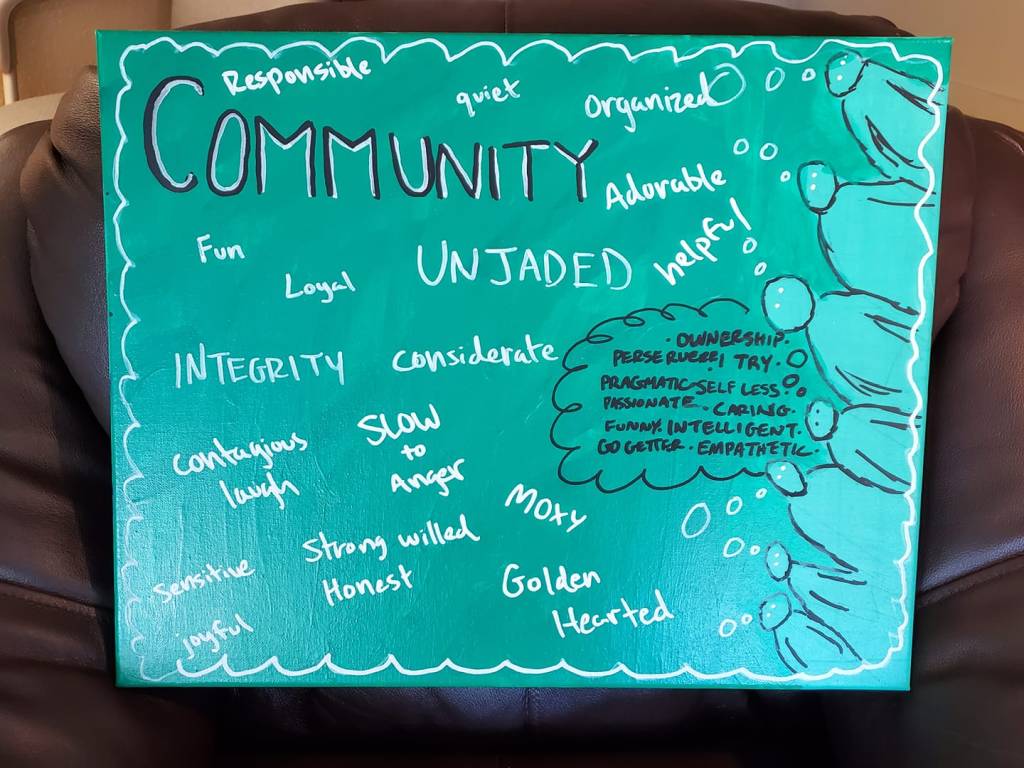 Responsible
quiet
Organized
COMMUNITY
Adorable
helpful
Fun
Loyal
UNJADED
INTEGRITY
considerate
· OWNERSHIP.
PERSERVERE! TRY.
PRAGMATIC·SELFLESS
PASSIONATE · CARING.
FUNNY. INTELLIGENT.
GO GETTER · EMPATHETIC.
contagious
laugh
SLOW
to
Anger
MOXY
Strong willed
sensitive
Honest
Golden
Hearted
joyful